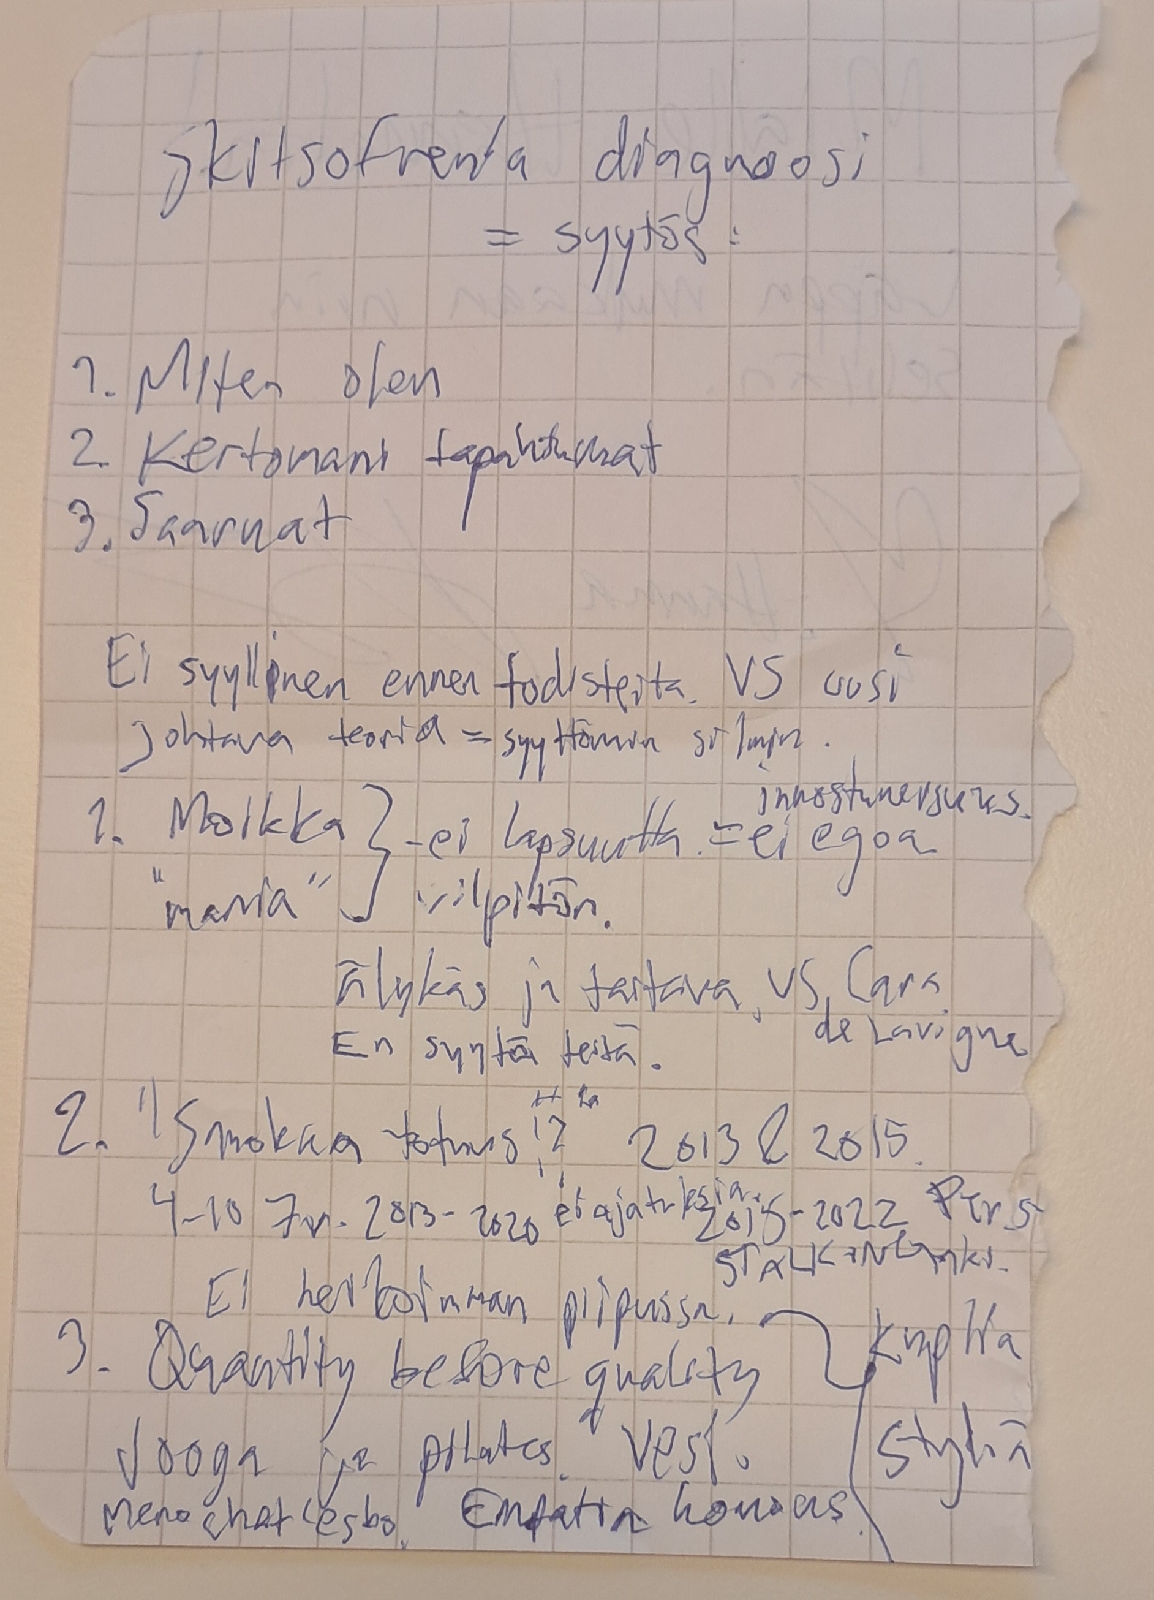 Skitsofrenia diagnoosi
= syytös:
1. Miten olen
2. Kertomani tapahtumat
3. Saarnat
Ei syyllinen ennen todisteita. VS uusi
johtava teoria = syyttömin silmin.
innostuneisuus.
1. Moikka } - ei lapsuutta. = ei egoa
"mania" vilpitön.
Älykäs ja taitava, VS, Cara
de Lavigne
En syytä teitä.
2. "Smokaa totuus!?" 2013 & 2015.
4-10 Tr. 2013-2020 ei ajatuksia. 2015-2022 Pers
STALKING
Ei herkoimman piipussa.
3. Quantity before quality
Kuplia
Jooga ja pilates. Vesi.
Styliä
Meno chat lesbo. Empatia